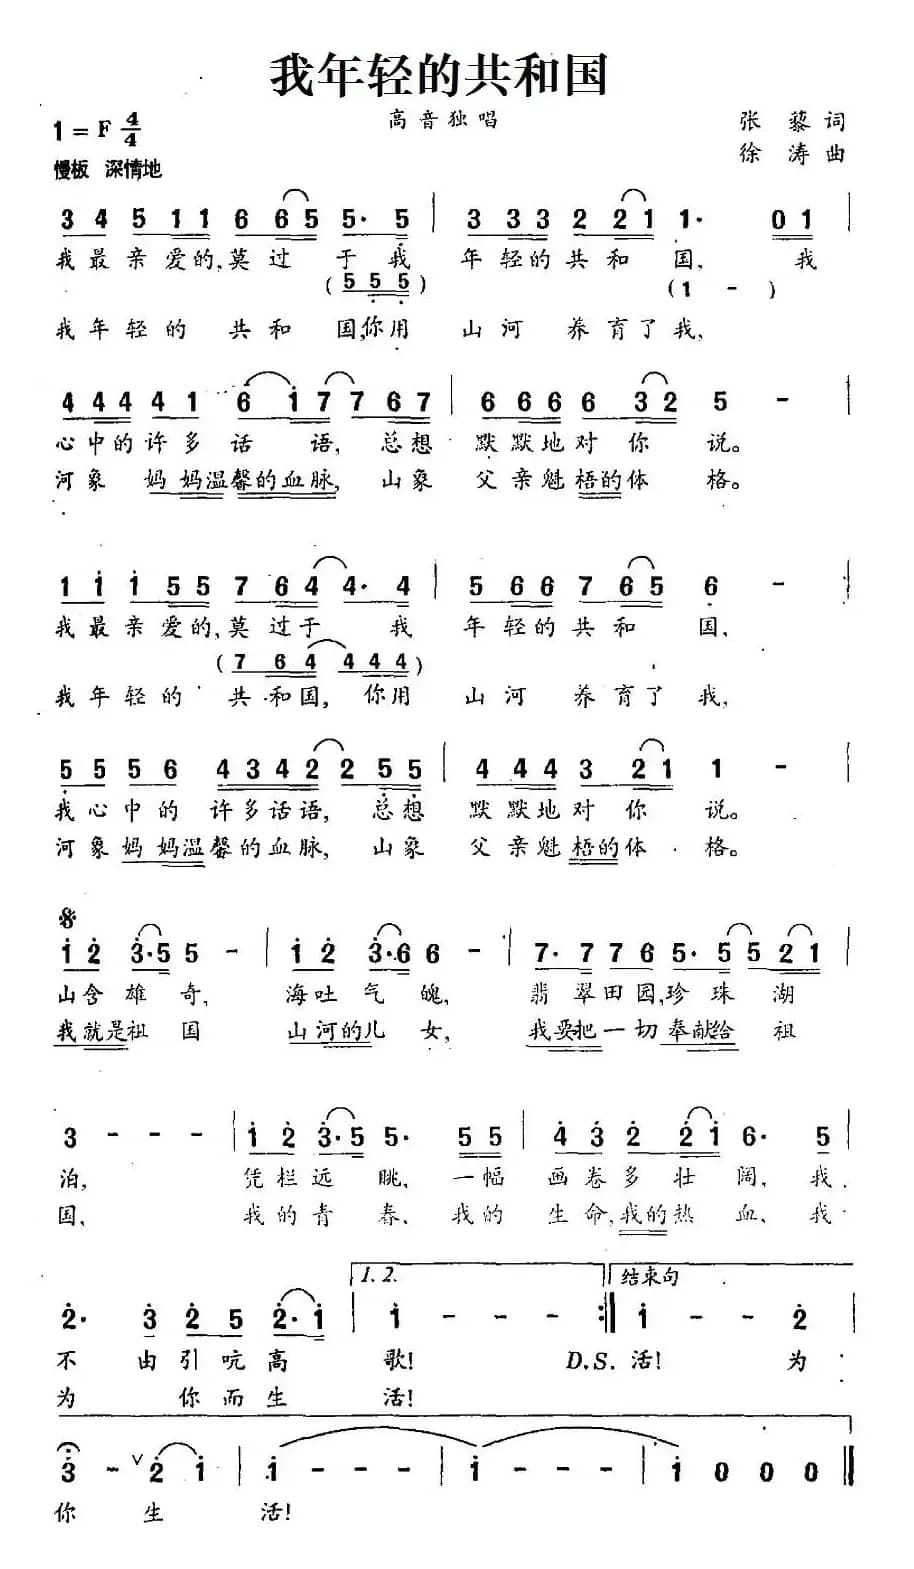 我年轻的共和国
高音独唱
张藜词
1=F 4/4
徐涛曲
慢板 深情地
3 4 5 1 1 6 6 5 5· 5 | 3 3 3 2 2 1 1· 0 1 |
我最亲爱的,莫过于我 年轻的共和国, 我
(5 5 5) (1 -)
我年轻的共和国,你用 山河养育了我,
4 4 4 4 1 6 1 7 7 6 7 | 6 6 6 6 3 2 5 - |
心中的许多话语, 总想 默默地对你说。
河象妈妈温馨的血脉, 山象 父亲魁梧的体格。
1 1 1 5 5 7 6 4 4· 4 | 5 6 6 7 6 5 6 - |
我最亲爱的,莫过于我 年轻的共和国,
(7 6 4 4 4 4)
我年轻的共和国, 你用 山河养育了我,
5 5 5 6 4 3 4 2 2 5 5 | 4 4 4 3 2 1 1 - |
我心中的许多话语, 总想 默默地对你说。
河象妈妈温馨的血脉, 山象 父亲魁梧的体格。
1 2 3·5 5 - | 1 2 3·6 6 - | 7· 7 7 6 5· 5 5 2 1
山含雄奇, 海吐气魄, 翡翠田园,珍珠湖
我就是祖国 山河的儿女, 我要把一切奉献给祖
3 - - - | 1 2 3·5 5· 5 5 | 4 3 2 2 1 6· 5 |
泊, 凭栏远眺, 一幅 画卷多壮阔, 我
国, 我的青春、我的 生命,我的热血、我
1. 2. 结束句
2· 3 2 5 2·1 | 1 - - - :| 1 - - 2
不由引吭高歌! D.S. 活! 为
为你而生活!
3 - 2 1 | 1 - - - | 1 - - - | 1 0 0 0 ||
你生活!